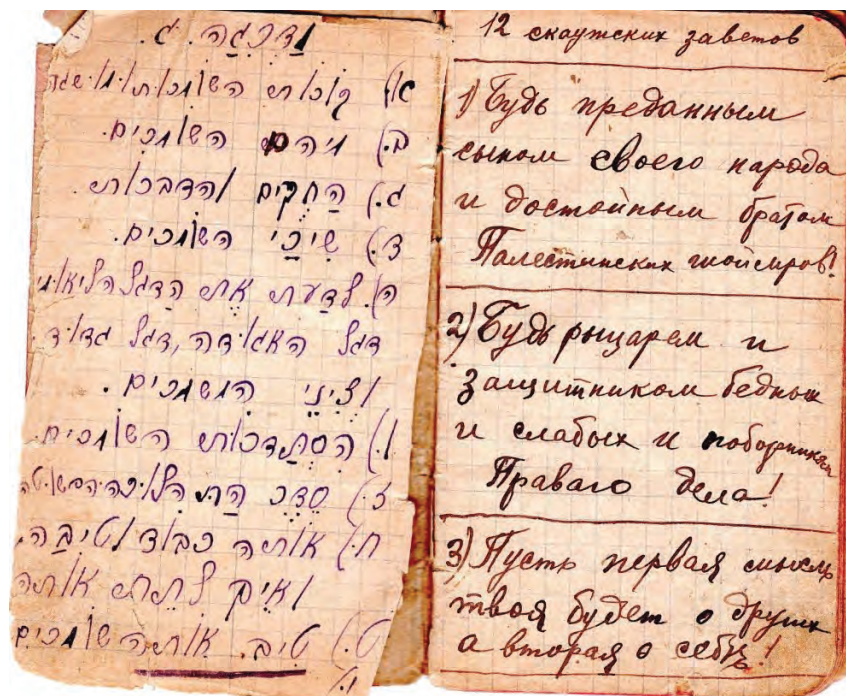 דרגה. ג.
א.) קורות
ב.) מיהם השומרים.
ג.) הַחֻקים והדברות.
ד.) שִירֵי השומרים.
ה.) לדַעת את הַדגל הליאומי
דגל האגודה, דגל גדוד.
וצִינֵי המשמרים.
ו.) הסתַדרות השומרים.
ז.) סֵדֶר
ח.) אותה כבוד וטיבה.
ואיך לתת אותה
ט.) טיב. אותה שומרים
12 скаутских заветов
1) Будь преданным
сыном своего народа
и достойным братом
Палестинских шоймеров!
2) Будь рыцарем и
защитником бедных
и слабых и поборником
Праваго дела!
3) Пусть первая мысль
твоя будет о других
а вторая о себѣ!